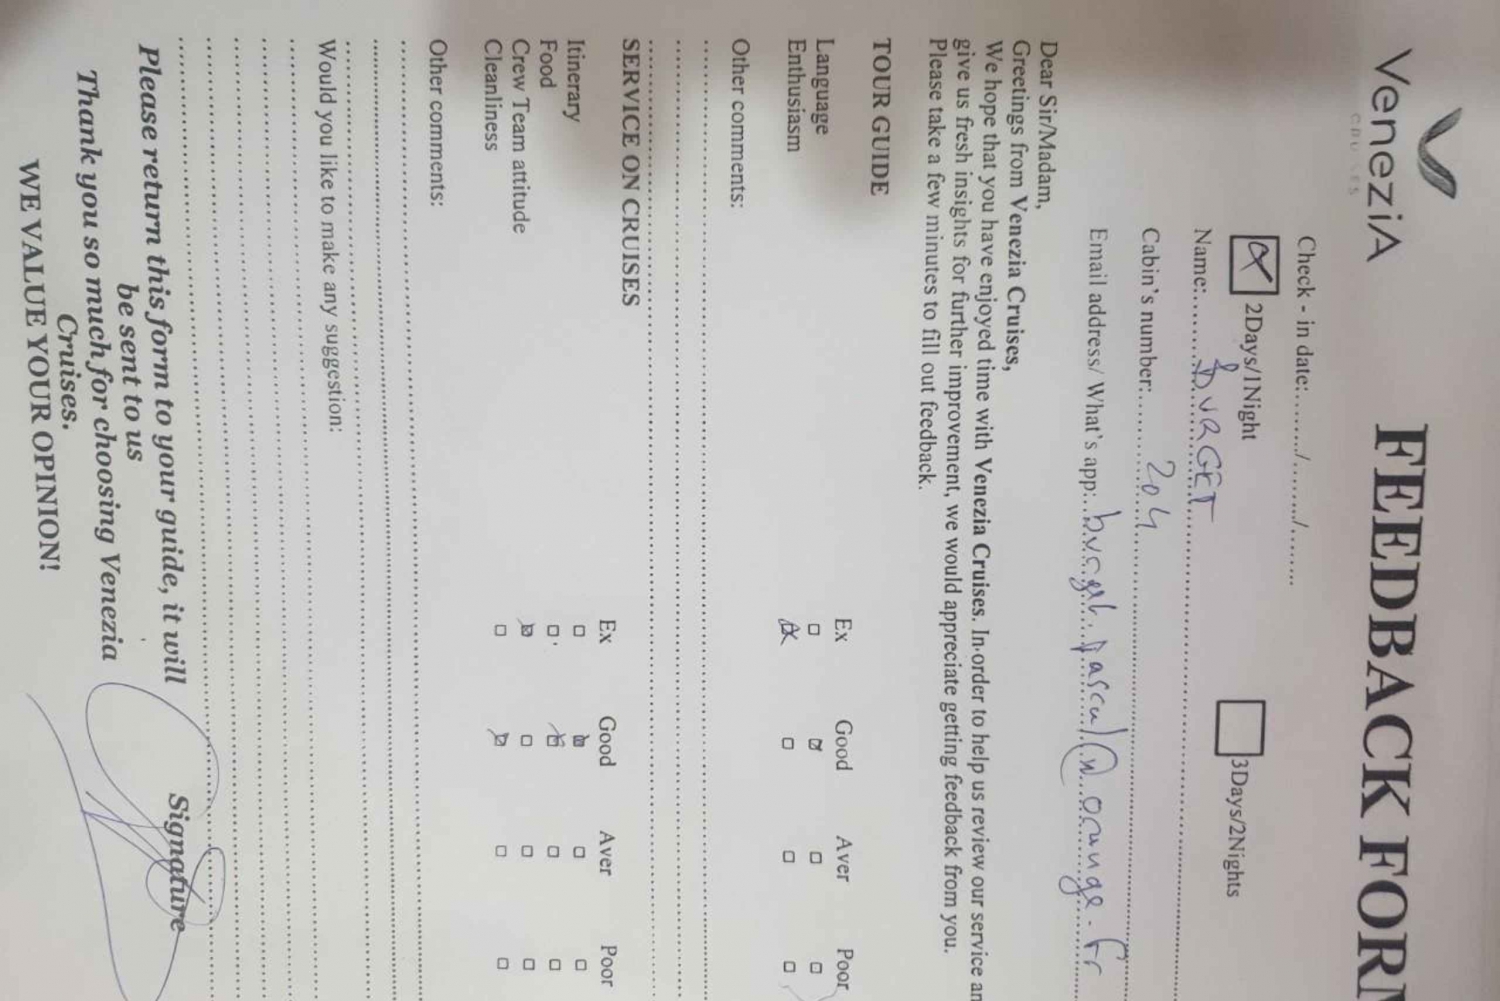 VeneziA
CRUISES
FEEDBACK FORM
Check - in date:......./......./.......
2Days/1Night
3Days/2Nights
Name: BUGET
Cabin's number: 204
Email address/ What's app: buget.pascal@orange.fr
Dear Sir/Madam,
Greetings from Venezia Cruises,
We hope that you have enjoyed time with Venezia Cruises. In order to help us review our service an
give us fresh insights for further improvement, we would appreciate getting feedback from you.
Please take a few minutes to fill out feedback.
TOUR GUIDE
Ex Good Aver Poor
Language
Enthusiasm
Other comments:
SERVICE ON CRUISES
Ex Good Aver Poor
Itinerary
Food
Crew Team attitude
Cleanliness
Other comments:
Would you like to make any suggestion:
Please return this form to your guide, it will
be sent to us
Thank you so much for choosing Venezia
Cruises.
WE VALUE YOUR OPINION!
Signature